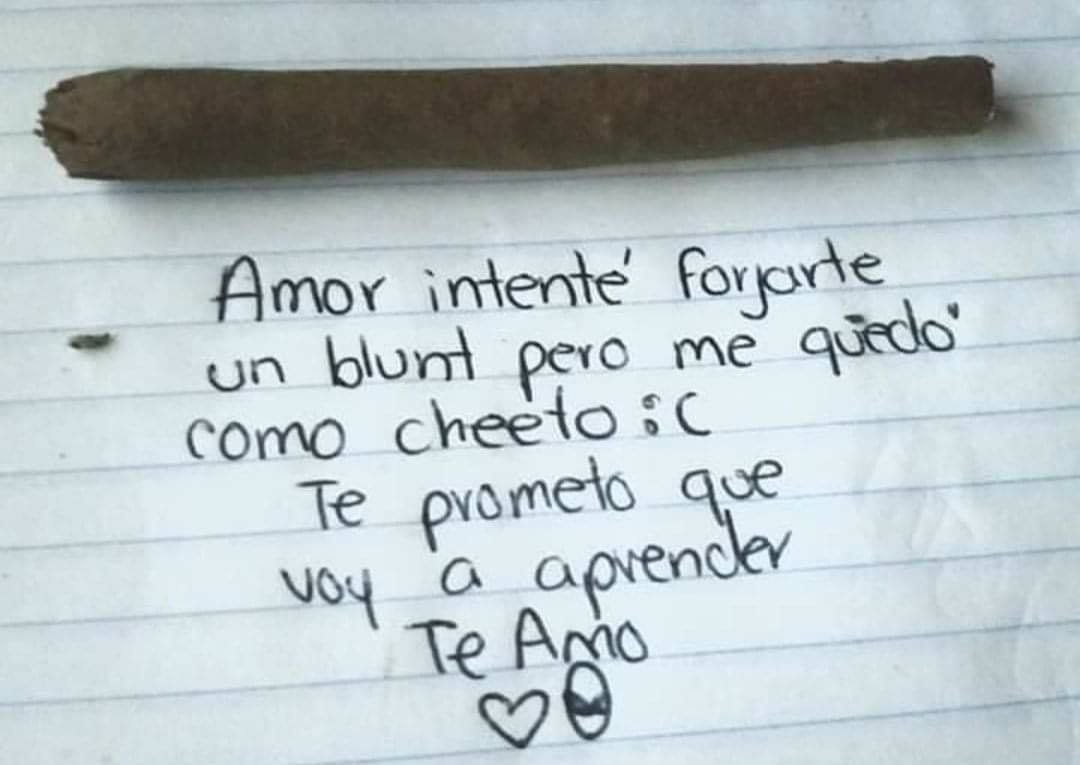 Amor intenté forjarte
un blunt pero me quedó
como cheeto :C
Te prometo que
voy a aprender
Te Amo